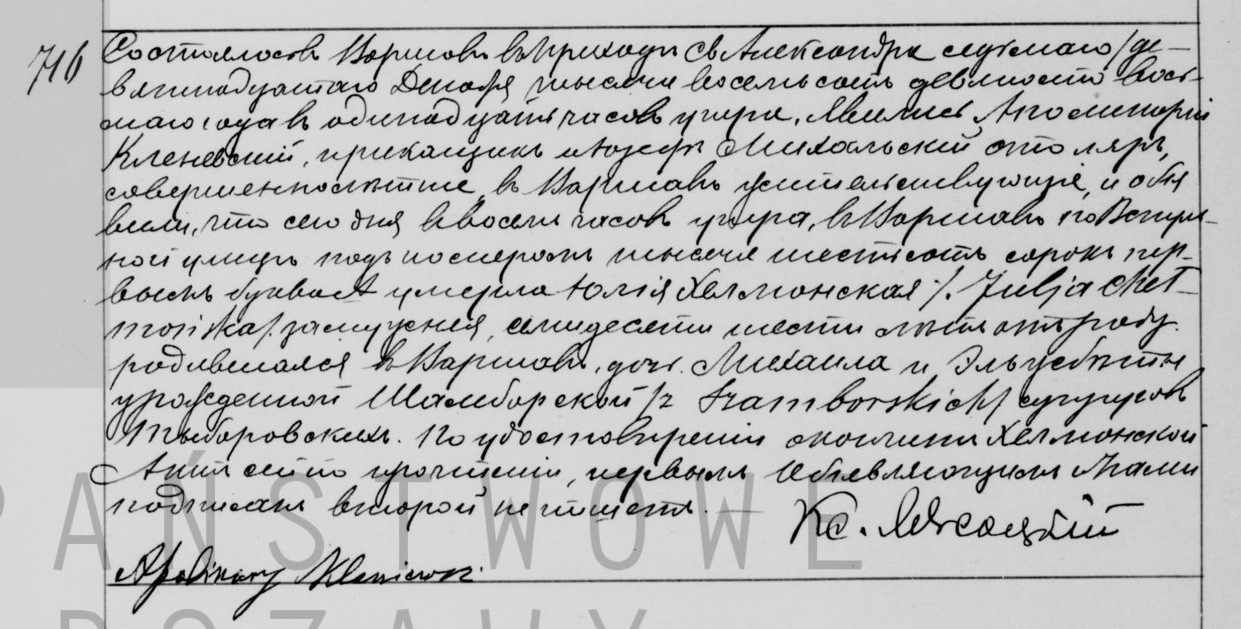 716
Состоялось въ Варшавѣ въ приходѣ Св. Александра седьмаго /де-
вятнадцатаго Декабря тысяча восемьсотъ девяносто вось-
маго года въ одинадцать часовъ утра. Явились Аполинарій
Кленевскій, прикащикъ и Іозефъ Михальскій столяръ,
совершеннолѣтніе, въ Варшавѣ жительствующіе, и объя
вили, что сего дня въ восемь часовъ утра, въ Варшавѣ по
ной улицѣ подъ номеромъ тысяча шестьсотъ сорокъ пер-
вымъ буквою А умерла Юлія Хелмонская /: Julja Cheł-
mońska/. замужняя, семидесяти шести лѣтъ отъ роду.
родившаяся въ Варшавѣ, дочь Михаила и Эльжбѣты
урожденной Шамборской /z Szamborskich/ супруговъ
По удостовѣреніи о кончинѣ Хелмонской
Актъ сей по прочтеніи, первымъ объявляющимъ и Нами
подписанъ второй не пишетъ.
Кс.
Apolinary Kleniewski
PAŃSTWOWE